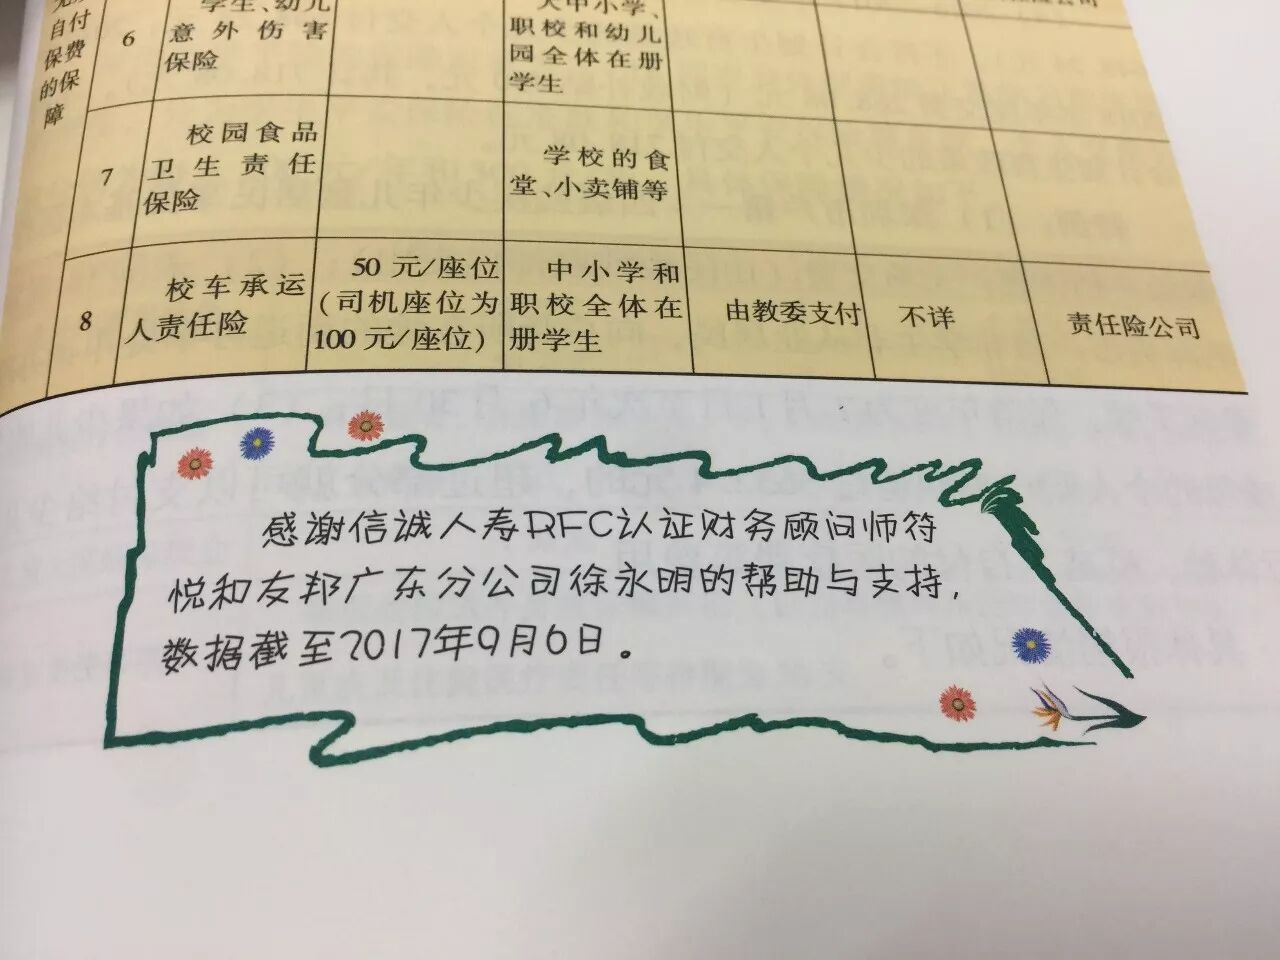 自付
保费
的保
障
6
学生、幼儿
意外伤害
保险
大中小学、
职校和幼儿
园全体在册
学生
7
校园食品
卫生责任
保险
学校的食
堂、小卖铺等
8
校车承运
人责任险
50元/座位
(司机座位为
100元/座位)
中小学和
职校全体在
册学生
由教委支付
不详
责任险公司
感谢信诚人寿RFC认证财务顾问师符
悦和友邦广东分公司徐永明的帮助与支持,
数据截至2017年9月6日。